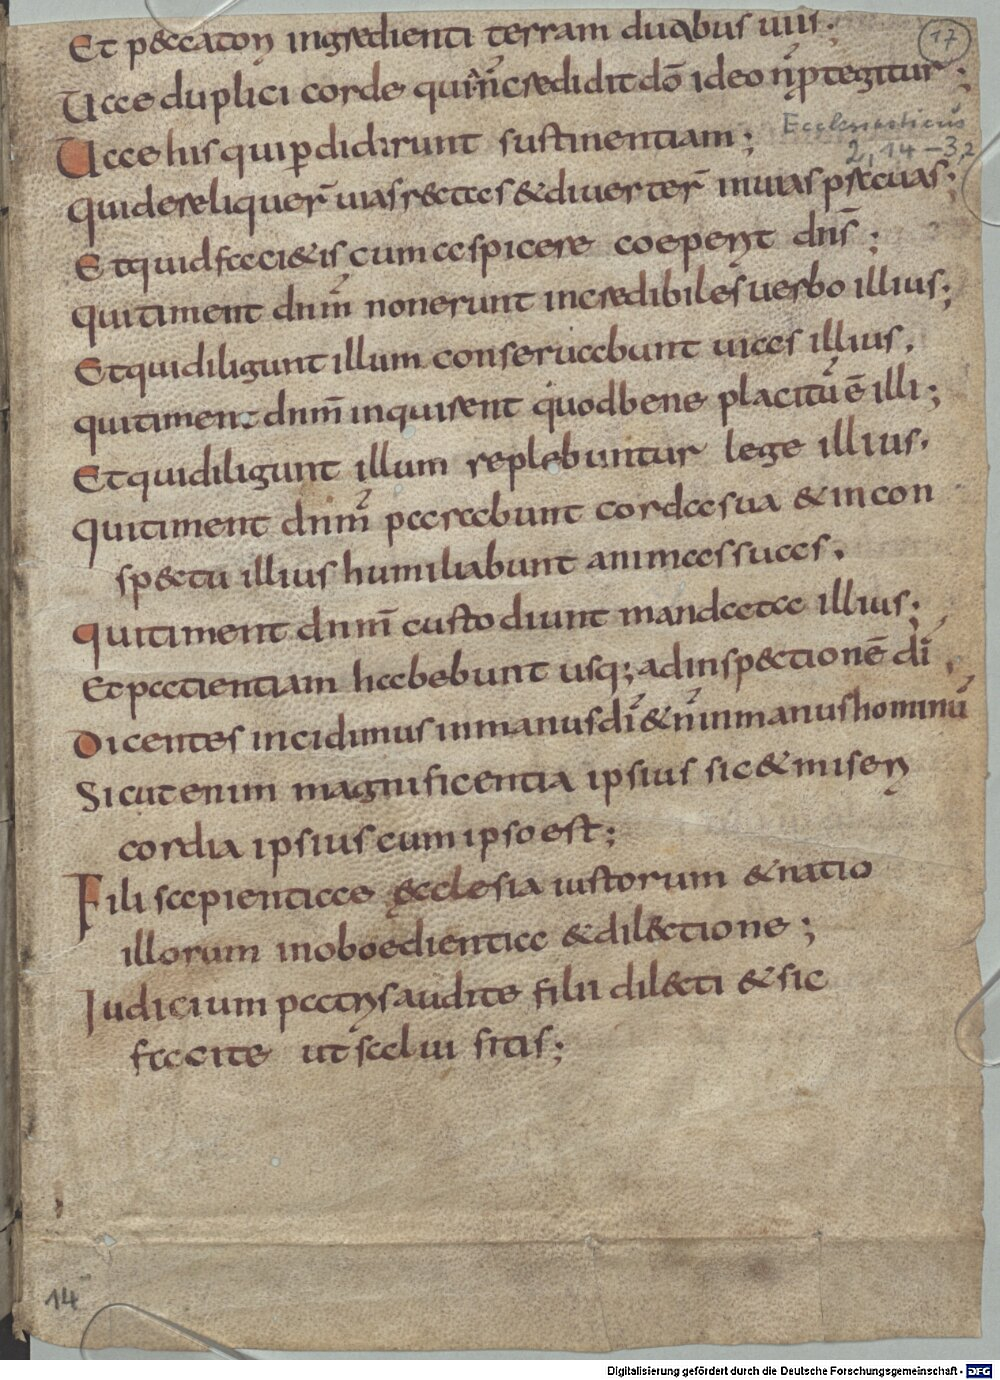 Et peccatori ingredienti terram duabus uiis;
17
Uae duplici corde qui n̄ credidit dō ideo n̄ ptegitur;
Ecclesiasticus
2,14-3,2
Uae his qui pdidirunt sustinentiam;
Qui dereliquer̄ uias rectas & diuerter̄ in uias prauas;
Et quid faci&is cum aspicere coeperit dn̄s;
Qui timent dnm̄ non erunt incredibiles uerbo illius;
Et qui diligunt illum conseruabunt uias illius.
qui timent dnm̄ inquirent quod bene placitū ē illi;
Et qui diligunt illum replebuntur lege illius.
Qui timent dnm̄ pararabunt corda sua & in con
sp&ctu illius humiliabunt animas suas.
Qui timent dnm̄ custodiunt mandata illius;
Et patientiam habebunt usq; ad insp&ctionē dī.
Dicentes incidimus in manus dī & n̄ in manus hominū
Sicut enim magnificentia ipsius sic & miseri
cordia ipsius cum ipso est;
Fili sapientiae ecclesia iustorum & natio
illorum inoboedientia & dil&ctione;
Iudicium patris audite filii dil&cti & sic
facite ut salui sitis;
14
Digitalisierung gefördert durch die Deutsche Forschungsgemeinschaft - DFG